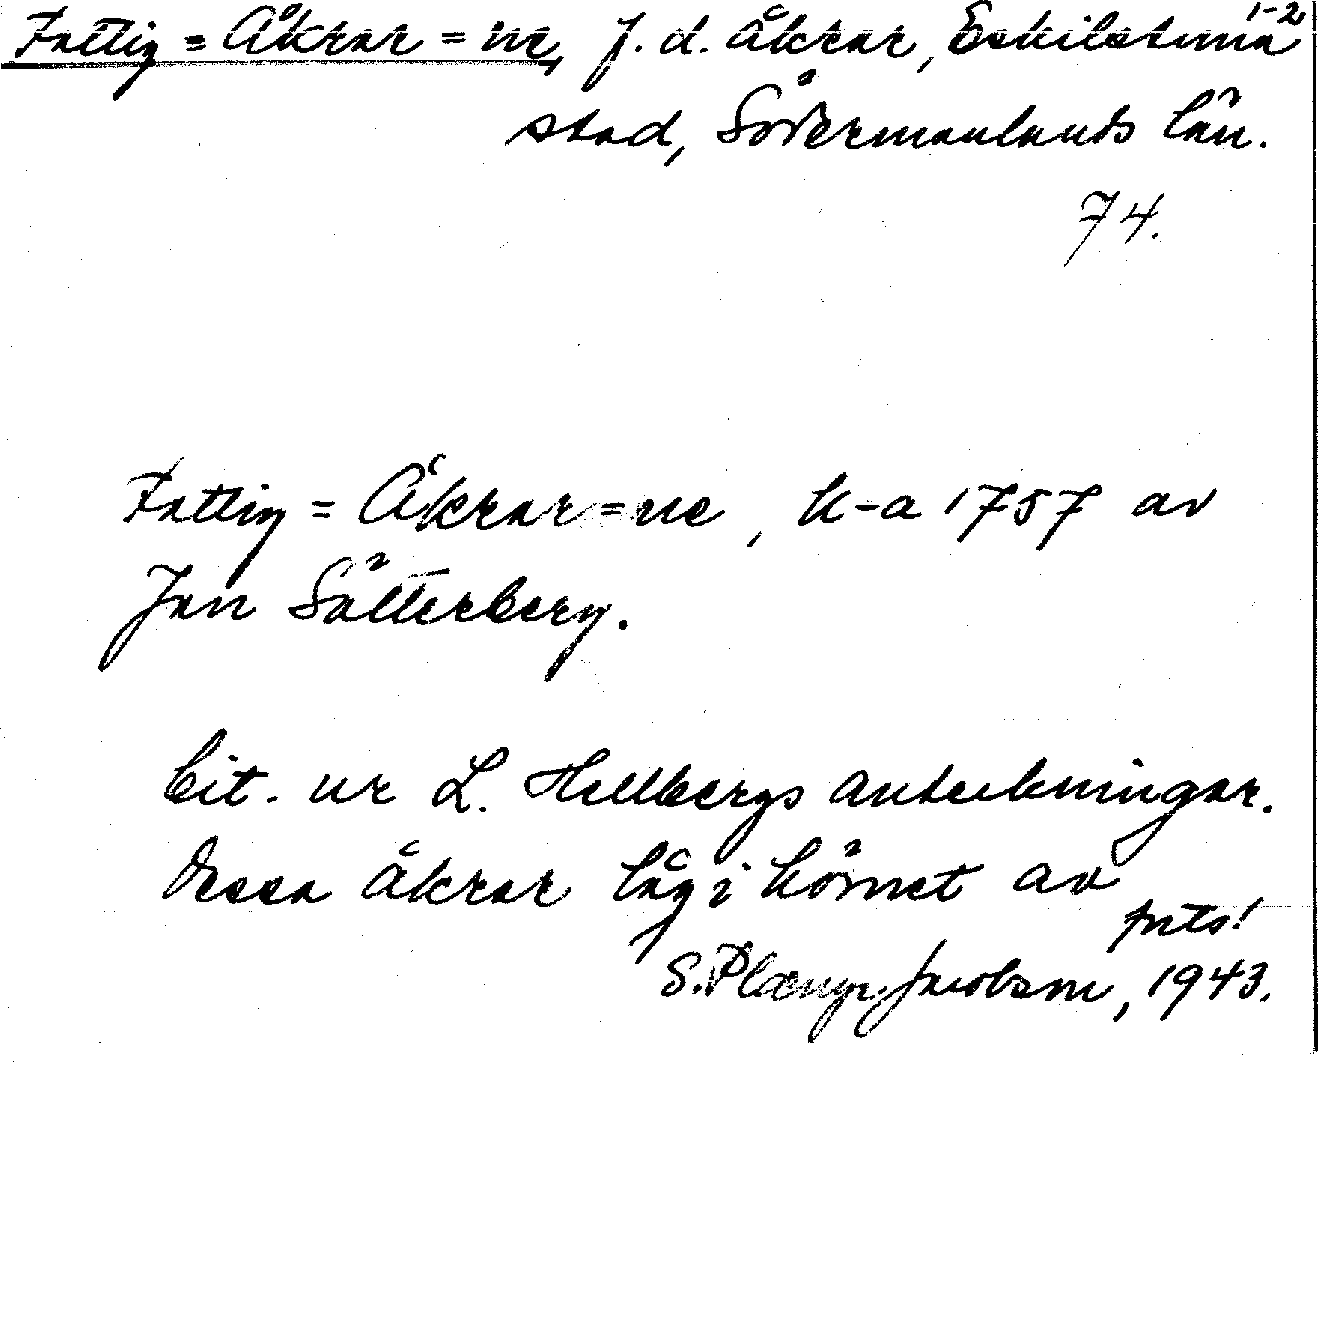 1-2
Fattig = Åkrar = ne, f. d. åkrar, Eskilstuna
stad, Södermanlands län.
74.
Fattig = Åkrar = ne, k-a 1757 av
Jan Sätterberg.
Cit. ur L. Hellbergs anteckningar.
Dessa åkrar låg i hörnet av
forts!
S. Jacobson, 1943.